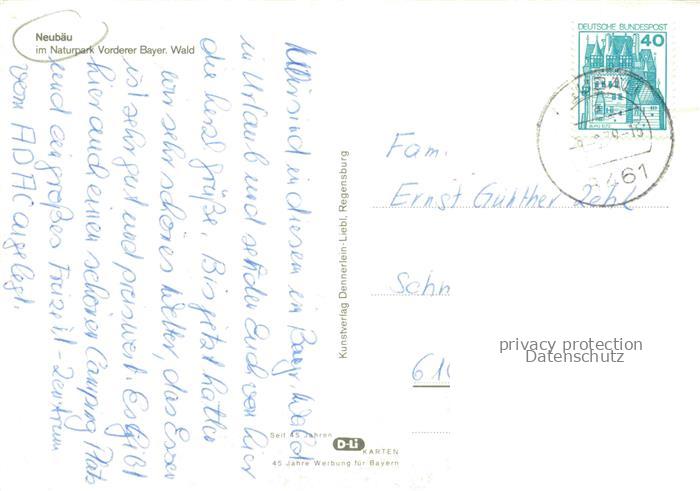 Neubäu
im Naturpark Vorderer Bayer. Wald
Wir sind in diesem im Bayr. Wald
in Urlaub und senden Euch von hier
die herzl. grüße. Bis jetzt hatten
wir sehr schönes Wetter, das Essen
ist sehr gut und preiswert. Es gibt
hier auch einen schönen Camping Platz
und ein großes Freizeit-Zentrum
vom ADAC angelegt.
Kunstverlag Dennerlein-Liebl, Regensburg
Seit 45 Jahren
D-Li
KARTEN
45 Jahre Werbung für Bayern
DEUTSCHE BUNDESPOST
40
BURG ELTZ
8461
Fam.
Ernst Günther Zehl
Schn
610
privacy protection
Datenschutz